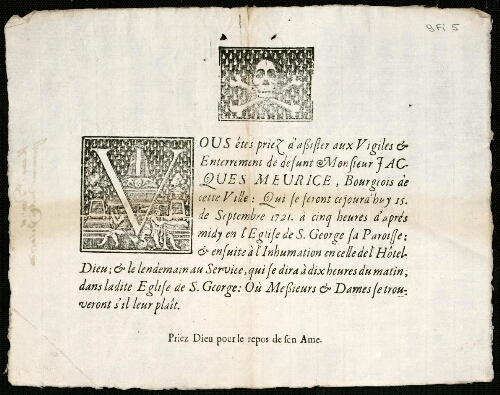 9 Fi 5
VOUS êtes priez d'assister aux Vigiles &
Enterrement de defunt Monsieur JAC-
QUES MEURICE, Bourgeois de
cette Ville: Qui se feront cejourd'huy 15.
de Septembre 1721. à cinq heures d'aprés
midy en l'Eglise de S. George sa Paroisse;
& ensuite à l'Inhumation en celle de l'Hôtel-
Dieu; & le lendemain au Service, qui se dira à dix heures du matin,
dans ladite Eglise de S. George: Où Messieurs & Dames se trou-
veront s'il leur plaît.
Priez Dieu pour le repos de son Ame.